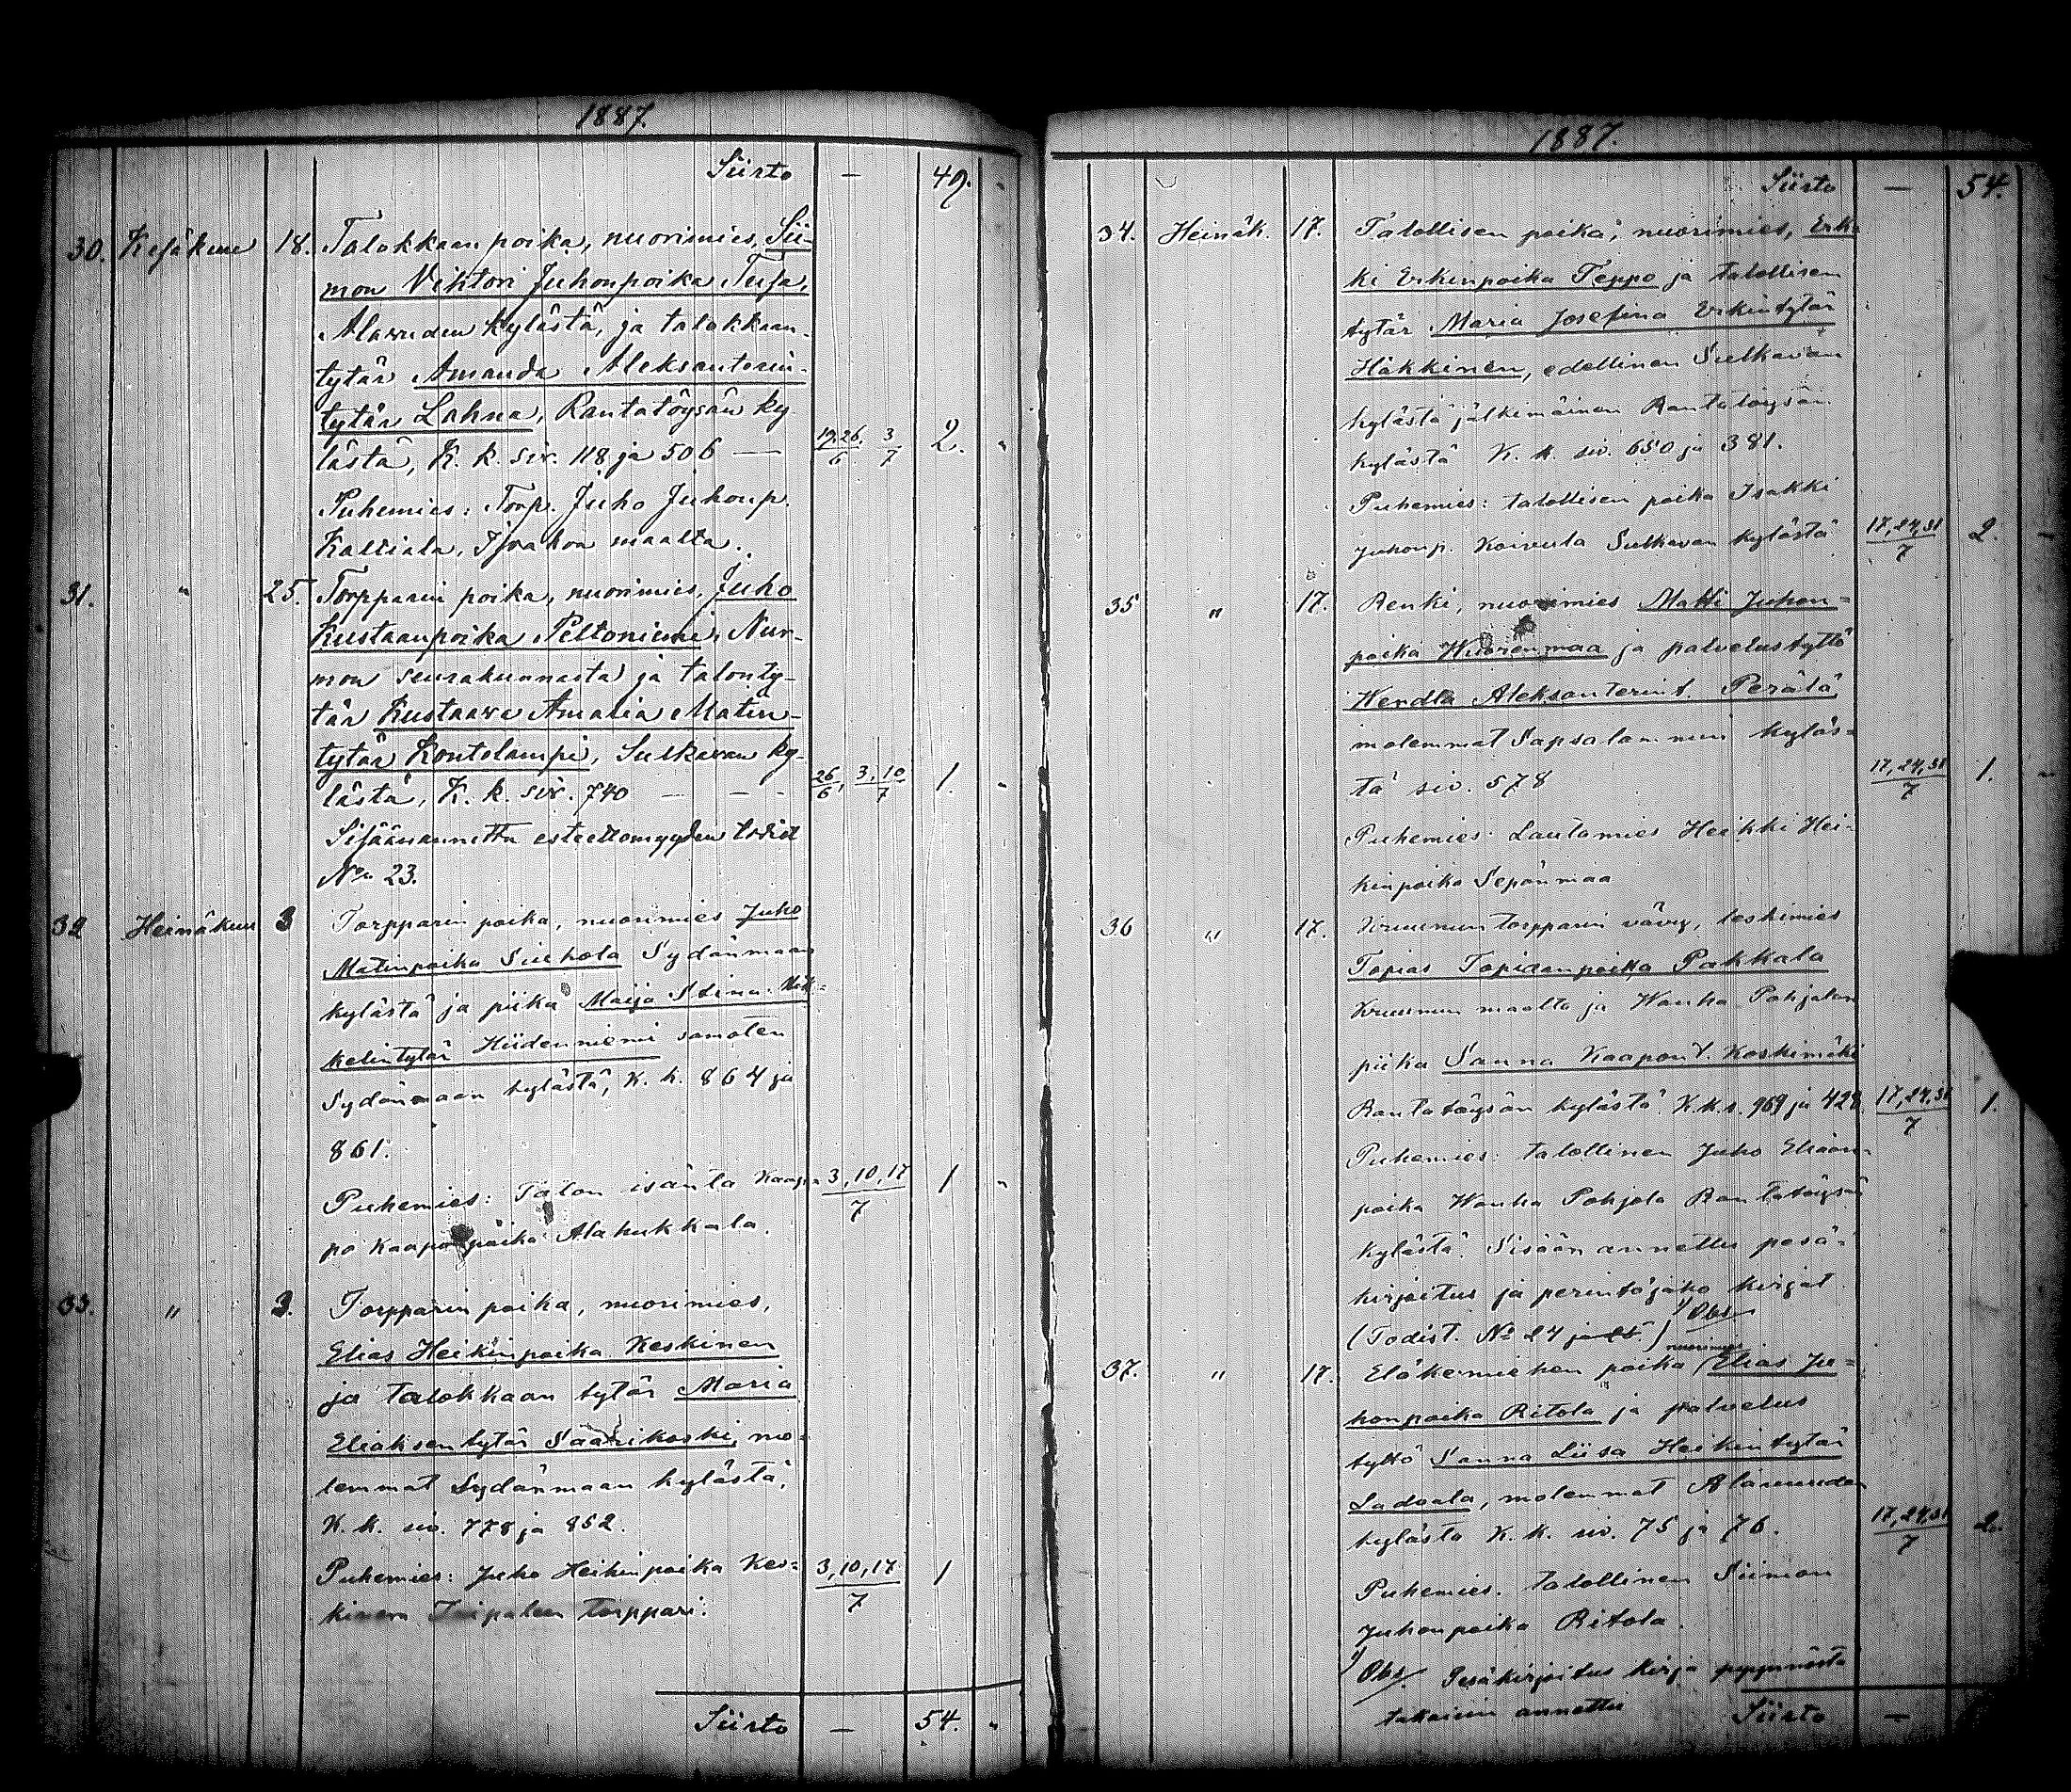 1887.
Siirto — 49. "
30. Kesäkuu 18. Talokkaan poika, nuorimies, Sii-
mon Vihtori Juhonpoika Tusa,
Alavuden kylästä, ja talokkaan-
tytär Amanda Aleksanterin-
tytär Lahna, Rantatöysän ky
lästä, K. k. siv. 118 ja 506 — 19,26/6 3/7 2. "
Puhemies: Torp. Juho Juhonp.
Kaltiala, maalta.
31. " 25. Torpparin poika, nuorimies, Juho
Kustaanpoika Peltoniemi, Nur-
mon seurakunnasta ja talonty-
tär Kustaava Amalia Matin-
tytär Kontolampi, Sulkavan ky-
lästä, K. k. siv. 740 — — — 26/6, 3,10/7 1. "
Sisäänannettu esteettömyyden todist
No 23.
32 Heinäkuu 3 Torpparin poika, nuorimies Juho
Matinpoika Siehola Sydänmaan
kylästä ja piika Maija Stina Mik-
kelintytär Hiidenniemi samoten
Sydänmaan kylästä, K. k. 864 ja
861.
Puhemies: Talon isäntä Kaap- 3,10,17/7 1 "
po Kaaponpoika Alahukkala.
33. " 3. Torpparin poika, nuorimies,
Elias Heikinpoika Keskinen
ja talokkaan tytär Maria
Eliaksentytär Saarikoski, mo-
lemmat Sydänmaan kylästä,
K. k. siv. 778 ja 852.
Puhemies: Juho Heikinpoika Kes- 3,10,17/7 1
kinen torppari.
Siirto — 54. "
1887.
Siirto — 54.
34. Heinäk. 17. Talollisen poika, nuorimies, Erk-
ki Erkinpoika Teppo ja talollisen
tytär Maria Josefina Erkintytär
Häkkinen, edellinen Sulkavan
kylästä jälkimäinen Rantatöysän
kylästä K. k. siv. 650 ja 381.
Puhemies: talollisen poika Isakki
Juhonp. Koivula Sulkavan kylästä 17,24,31/7 2. "
35 " 17. Renki, nuorimies Matti Juhon-
poika Wuorenmaa ja palvelustyttö
Wendla Aleksanterint. Perälä,
molemmat Sapsalammin kyläs-
tä siv. 578 17,24,31/7 1. "
Puhemies: Lautamies Heikki Hei-
kinpoika Sepänmaa
36 " 17. Kruunun torpparin vävy, leskimies
Topias Topiaanpoika Pakkala
Kruunun maalta ja Wanha Pohjalan
piika Sanna Kaapont. Koskimäki
Rantatöysän kylästä K. k. s. 969 ja 428 17,24,31/7 1.
Puhemies: talollinen Juho Eliaan-
poika Wanha Pohjola Rantatöysän
kylästä. Sisään annettu pesä-
kirjoitus ja perintöjako kirjat
(Todist. No 24 ja 25.) 1) Obs.
nuorimies
37. " 17. Eläkemiehen poika Elias Ju-
honpoika Ritola ja palvelus
tyttö Sanna Liisa Heikintytär
Ladvala, molemmat Alavuuden
kylästä K. k. siv. 75 ja 76. 17,24,31/7 2.
Puhemies. talollinen Siimon
Juhonpoika Ritola.
1) Obs. Pesäkirjoitus kirja pyynnöstä
takaisin annettu Siirto —